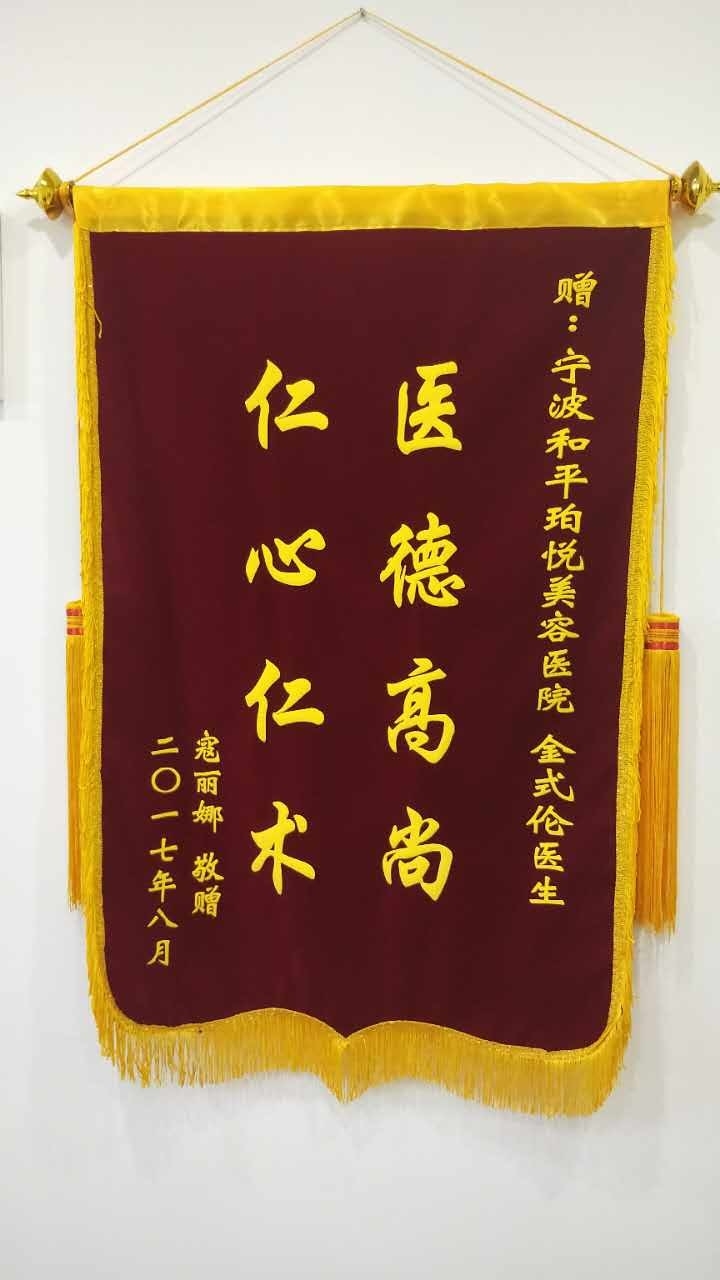 赠：宁波和平珀悦美容医院 金式伦医生
医德高尚
仁心仁术
寇丽娜 敬赠
二〇一七年八月